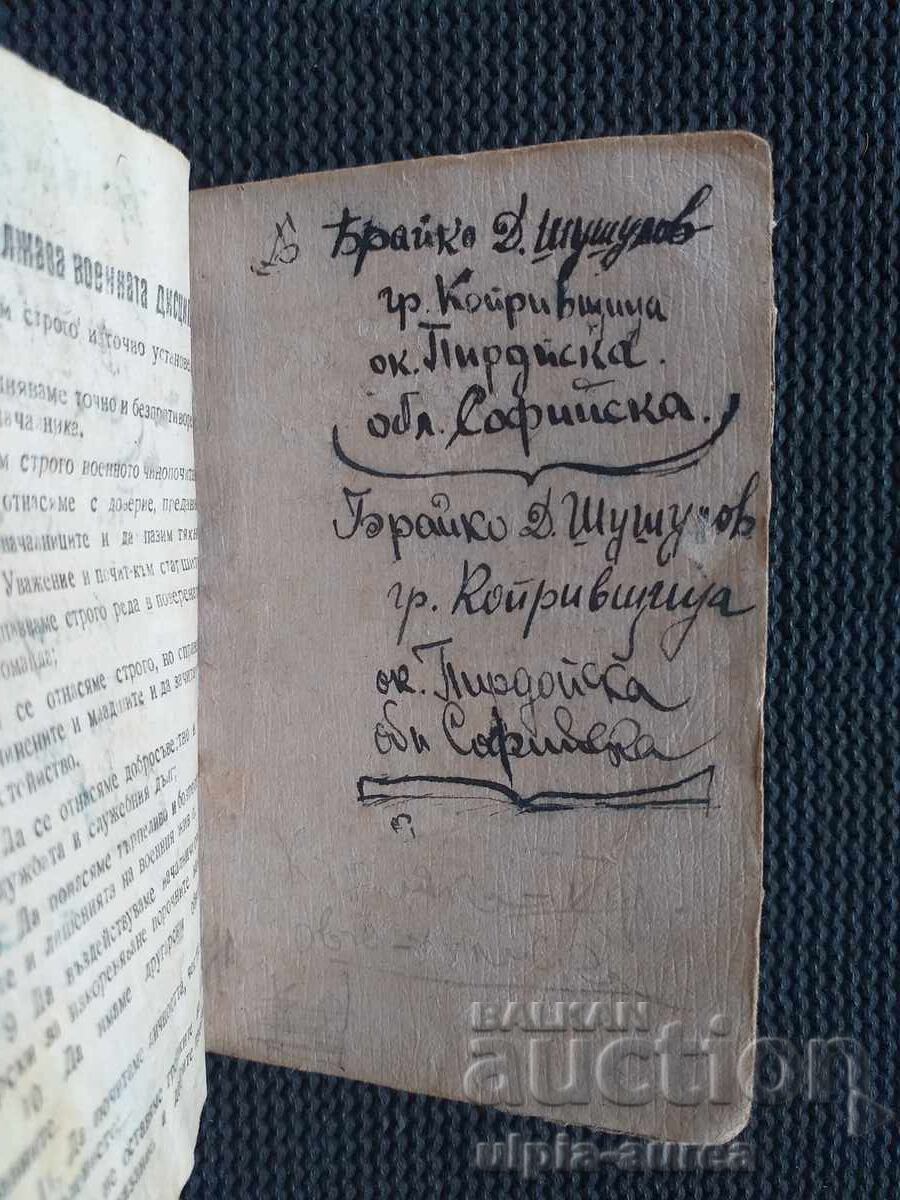 лжава военната дисци
м строго и точно установе
няваме точно и безпрекоре
началника.
м строго военното чинопочита
отнасяме с доверие, преданн
началниците и да пазим тяхн
Уважение и почит към старшите
строго реда в поверена
команда;
се отнасяме строго, но спра
чинените и младшите и да зачита
стойнство.
Да се отнасяме добросъвестно и
службата и служебния дълг;
Да понасяме търпеливо и
и лишенията на военния жив
9 Да въздействуваме
за изкореняване порочните
10 Да имаме другарски
11. Да почитаме личността,
не оставяме
Брайко Д. Шушулов
гр. Копривщица
ок. Пирдопска.
обл. Софийска.
Брайко Д. Шушулов
гр. Копривщица
ок. Пирдопска
обл Софийска
BALKAN
auction
ulpia-aurea